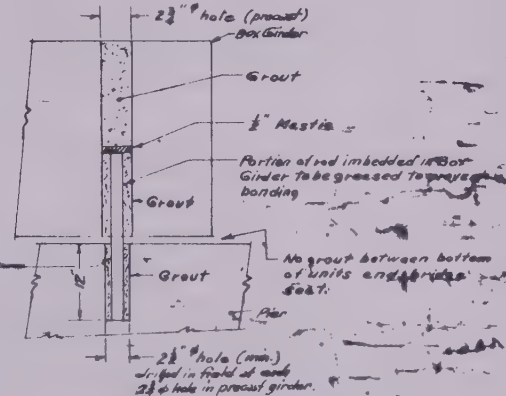 2 3/4" ø hole (precast)
Box Girder
Grout
1/2" Mastic
Portion of rod imbedded in Box
Girder to be greased to prevent
bonding
Grout
No grout between bottom
of units and bridge
seat.
12"
Grout
Pier
hole (min.)
drilled in field at each
hole in precast girder.